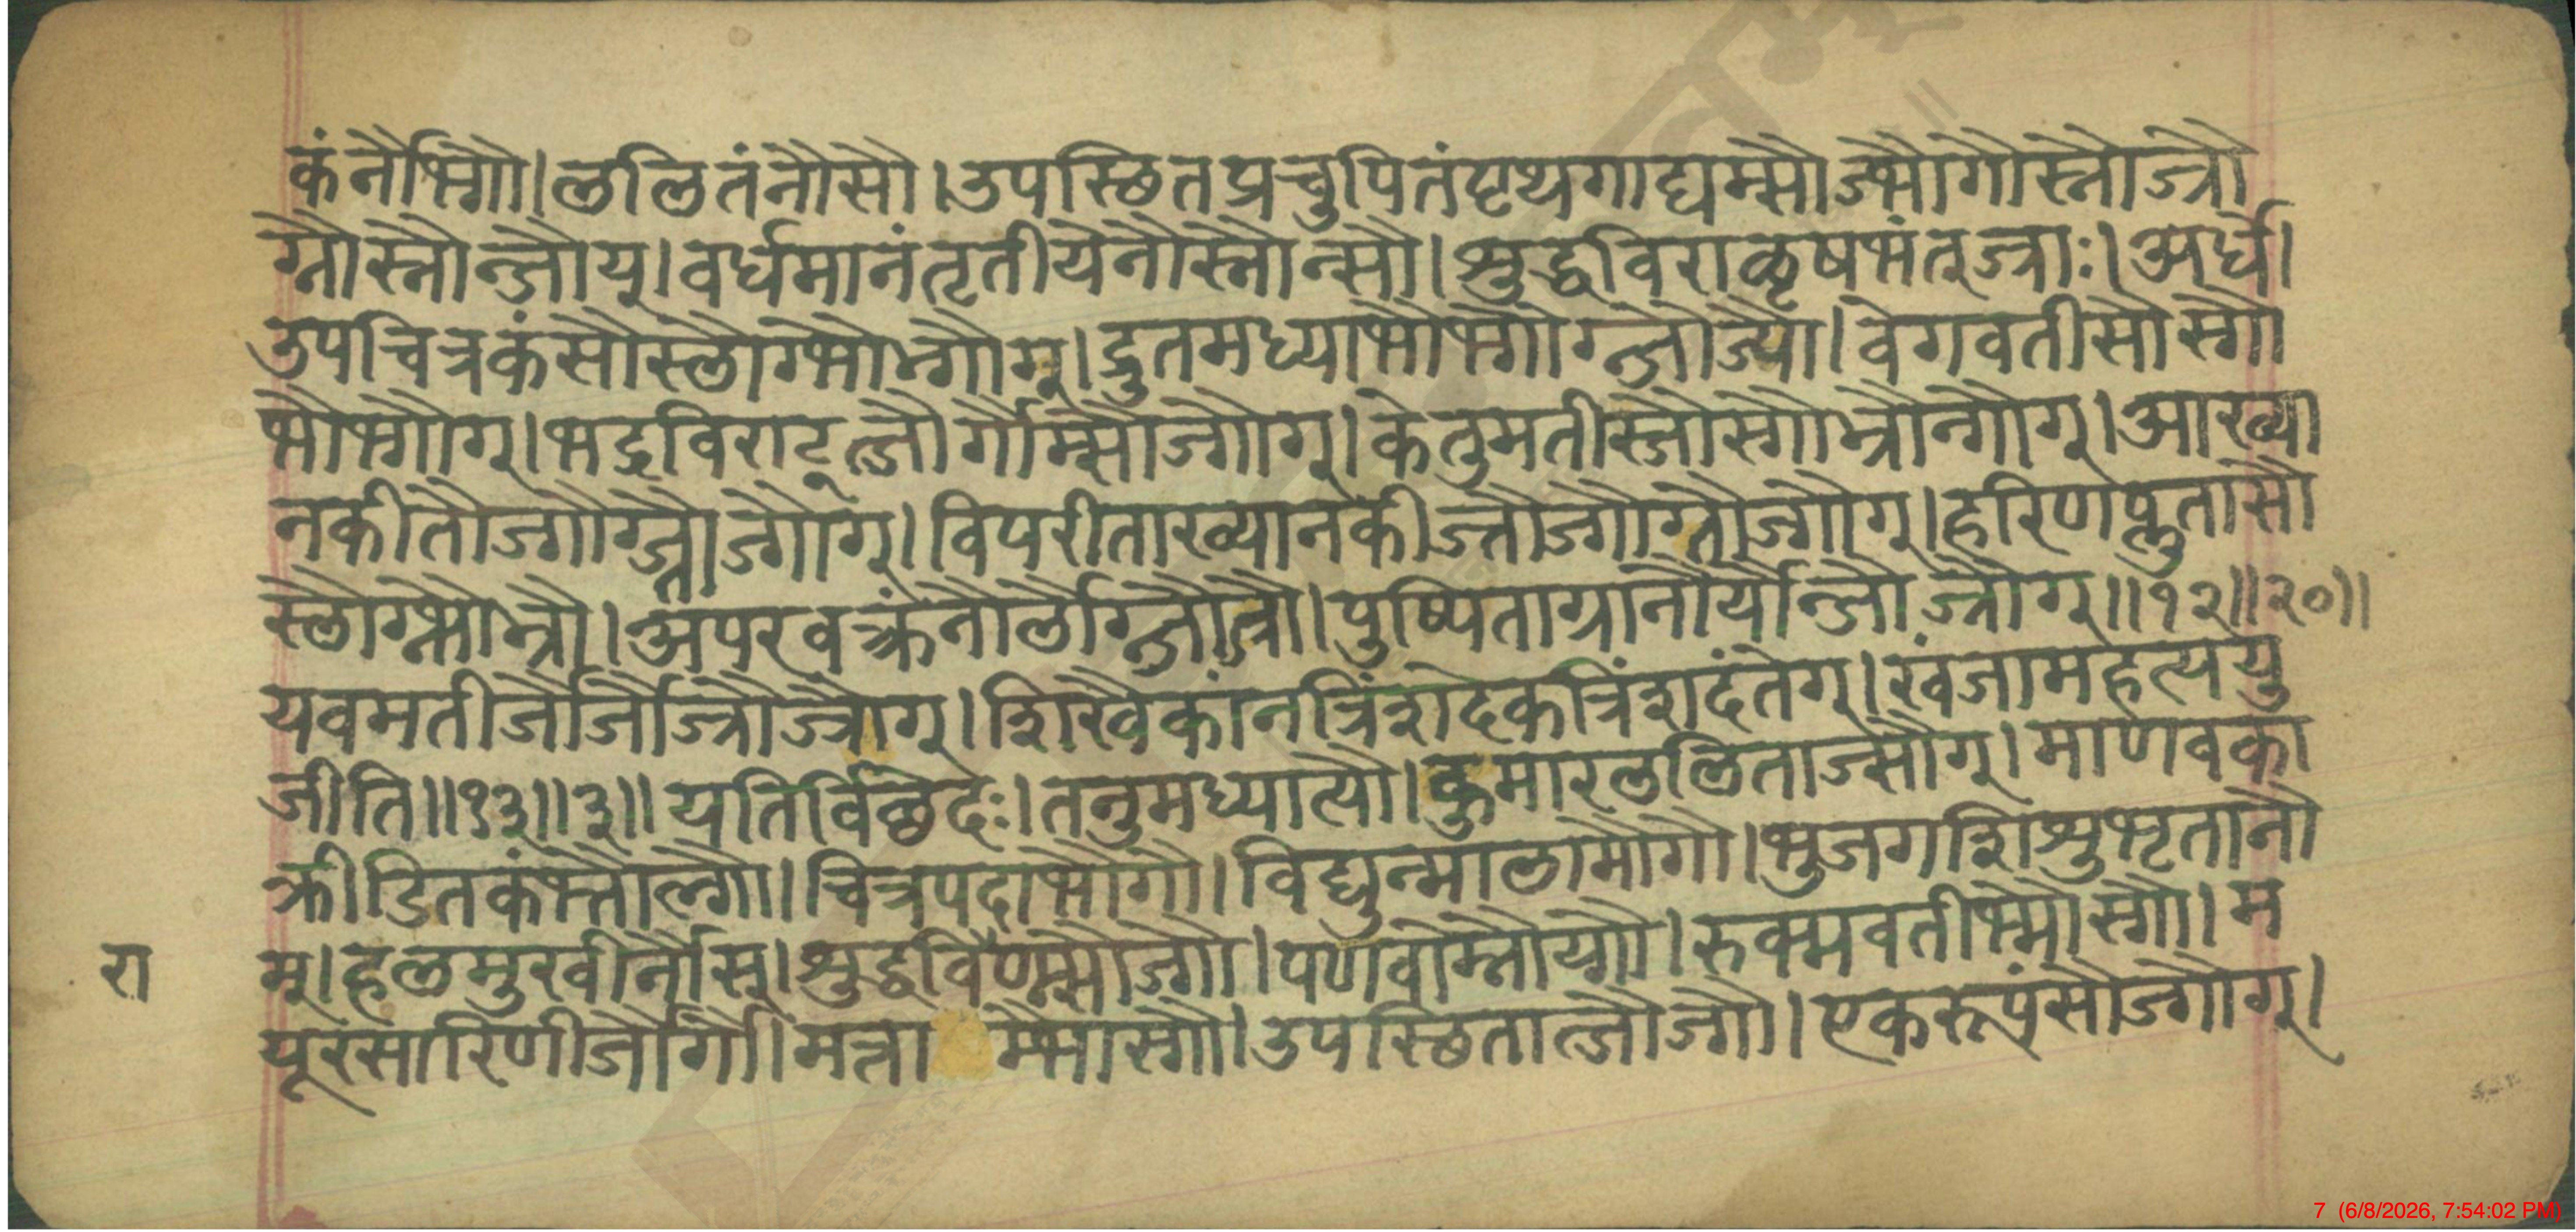 कंनौभ्गौ।ललितंनौसौ।उपस्थितप्रचुपितंपृथगाद्यम्सौज्भौगौस्नौज्रौ
ग्नौस्नौन्जौय्।वर्धमानंतृतीयेनौस्नौन्सौ।शुद्धविराळृषभंत्ज्राः।अर्धे।
उपचित्रकंसौस्लौग्भौभ्गौग्।द्रुतमध्याभौभ्गौग्न्जौज्यौ।वेगवतीसौस्गौ
भौभ्गौग्।भद्रविराट्त्जौर्गौम्सौज्गौग्।केतुमतीस्जौस्गौभ्रौन्गौग्।आख्या
नकीतौज्गौग्ज्तौज्गौग्।विपरीताख्यानकीज्तौज्गौग्तौज्गौग्।हरिणप्लुतासौ
स्लौग्भ्नौभ्रौ।अपरवक्त्रंनौर्लौग्न्जौज्रौ।पुष्पिताग्रानौर्यौन्जौज्रौग्॥१२॥२०॥
यवमतीर्जौर्जौज्रौज्रौग्।शिखैकांनत्रिंशदेकत्रिंशदंतेग्।खंजामहत्ययु
जीति॥१३॥३॥यतिर्विछेदः।तनुमध्यात्यौ।कुमारललिताज्सौग्।माणवका
क्रीडितकंभ्तौल्गौ।चित्रपदाभौगौ।विद्युन्मालामौगौ।भुजगशिशुभृतानौ
म्।हलमुखीर्नौस्।शुद्धविण्म्सौज्गौ।पणवोम्नौय्गौ।रुक्मवतीभ्मौस्गौ।म
रा
यूरसारिणीर्जौर्गौ।मत्ता म्भौस्गौ।उपस्थितात्जौज्गौ।एकरूपंसौज्गौग्।
7 (6/8/2026, 7:54:02 PM)